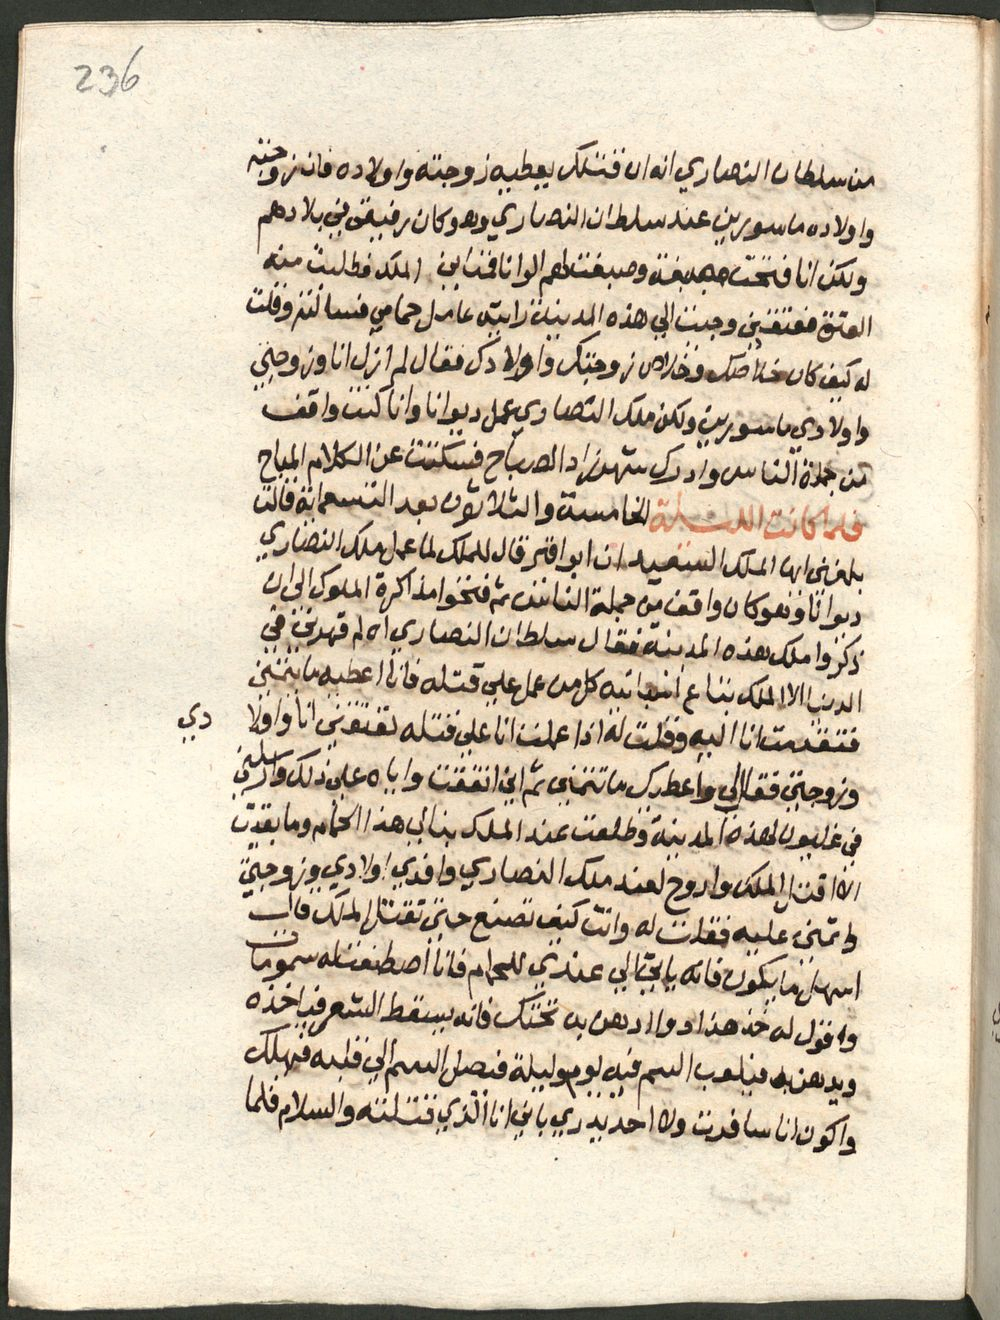 236
من سلطان النصاري انه ان قتلك يعطيه زوجته واولاده فان زوجته
واولاده ماسورين عند سلطان النصاري وهو كان رفيقي في بلادهم
ولكن انا فتحت مصبغة وصبغت لهم الوانا فتدابن الملك فطلبت منه
العتق فعتقني وجيت الي هذه المدينة رايته عامل حمامي فسالته وقلت
له كيف كان خلاصك وخلاص زوجتك واولادك فقال لم ازل انا وزوجتي
واولادي ماسورين ولكن ملك النصاري عمل ديوانا وانا كنت واقف
من جملة الناس وادرك شهرزاد الصباح فسكتت عن الكلام المباح
فلما كانت الليلة الخامسة والثلاثون بعد التسعماية قالت
بلغني ايها الملك السعيد ان ابو اقير قال للملك لما عمل ملك النصاري
ديوانا وهو كان واقف من جملة الناس ثم فتحوا مذاكرة الملوك الي ان
ذكروا ملك هذه المدينة فقال سلطان النصاري اه لم قهرني في
الدنيا الا الملك بتاع المدينه كل من عمل علي قتله فانا اعطيه ما يتمني
فتقدمت انا اليه وقلت له اذا عملت انا علي قتله تعتقني انا واولا
دي
وزوجتي فقال لي واعطيك ما تتمني ثم اني اتفقت واياه علي ذلك وارسلني
في غليون لهذه المدينة وطلعت عند الملك بنا لي هذا الحمام وما بقيت
الا اقتل الملك واروح لعند ملك النصاري وافدي اولادي وزوجتي
واتمني عليه فقلت له وانت كيف تصنع حتي تقتل الملك قال
اسهل ما يكون فانه ياتي الي عندي للحمام فانا اصطنعت له سموما
واقول له خذ هذا دوا ادهن به تحتك فانه يسقط الشعر فياخذه
ويدهن به فيلعب السم فيه يوم وليلة فيصل السم الي قلبه فيهلك
واكون انا سافرت ولا احد يدري باني انا الذي قتلته والسلام فلما